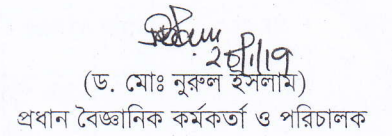 (ড. মোঃ নুরুল ইসলাম)
প্রধান বৈজ্ঞানিক কর্মকর্তা ও পরিচালক